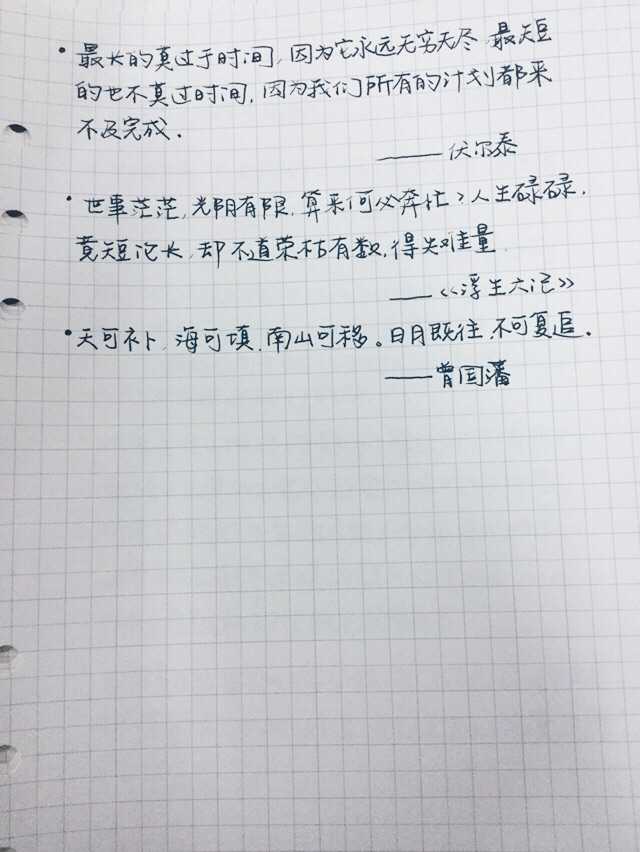 • 最长的莫过于时间,因为它永远无穷无尽,最短
的也不莫过时间,因为我们所有的计划都来
不及完成.
——伏尔泰
• 世事茫茫,光阴有限,算来何必奔忙?人生碌碌,
竟短论长,却不道荣枯有数,得失难量
——《浮生六记》
• 天可补,海可填,南山可移。日月既往,不可复追.
——曾国藩